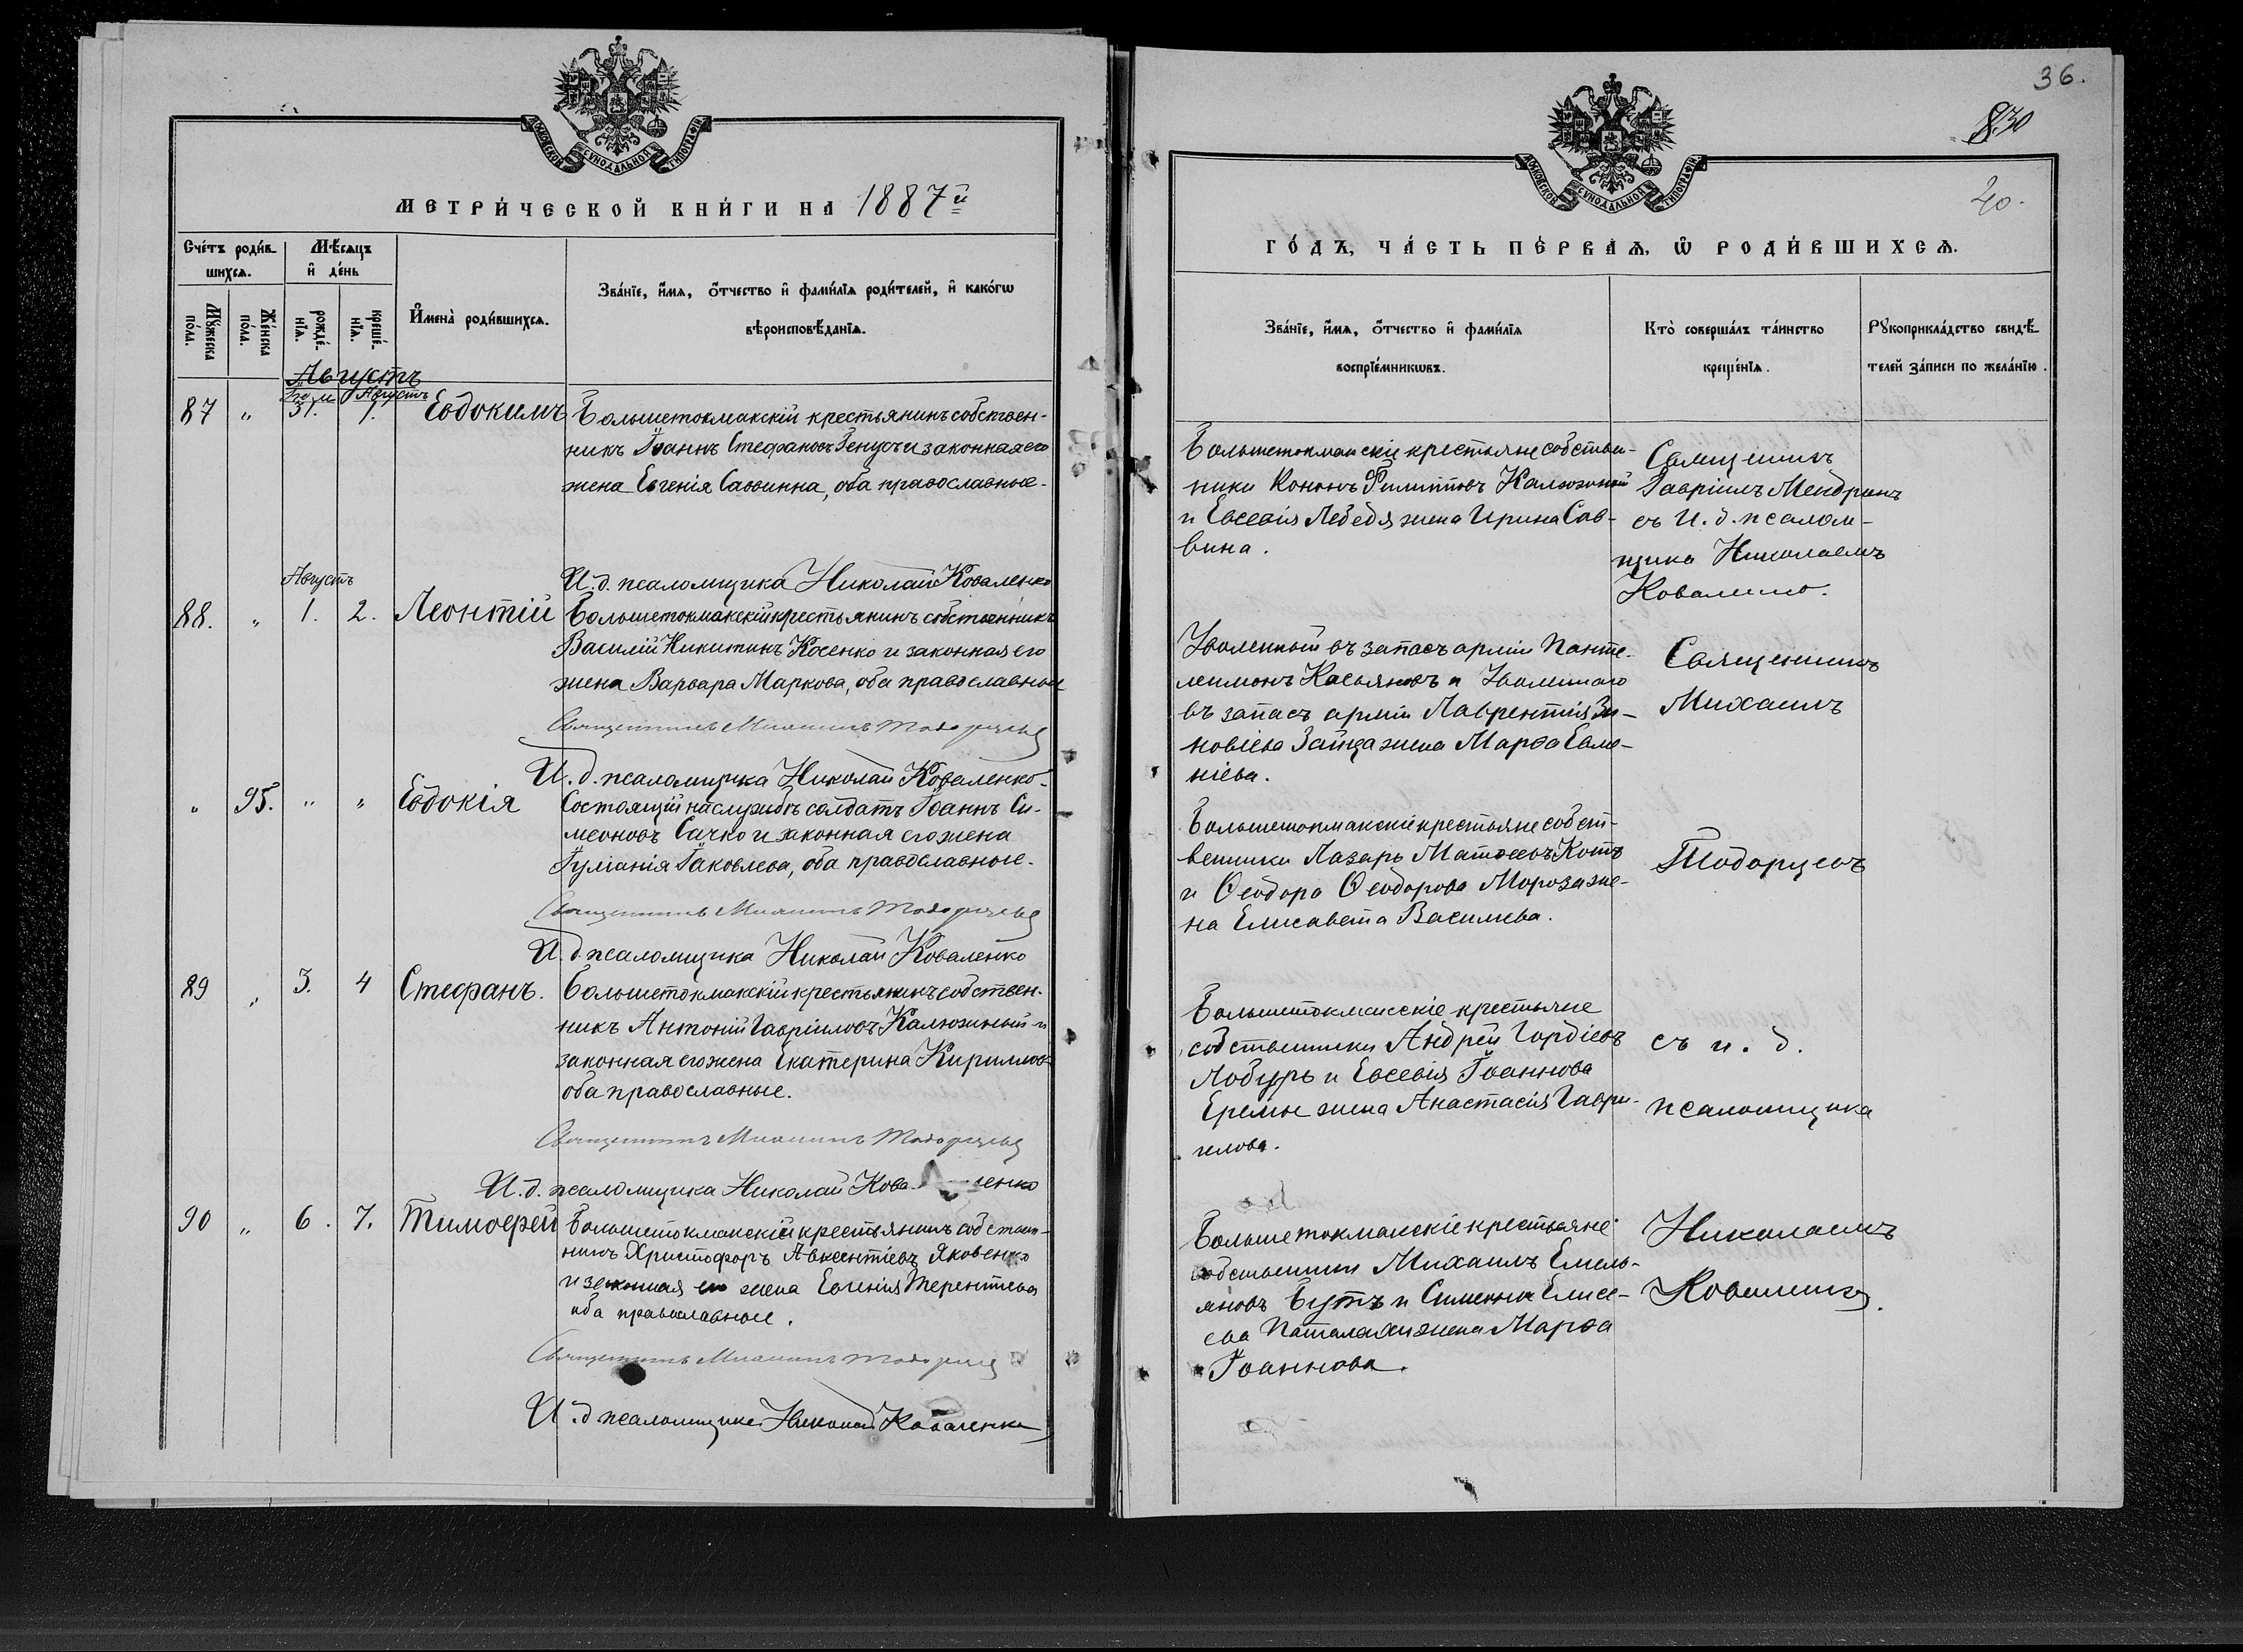 МОСКОВСКОЙ СУНОДАЛЬНОЙ ТИПОГРАФІИ
МЕТРИ́ЧЕСКОЙ КНИ́ГИ НА 1887й
Сче́тъ роди́в-
шихсѧ.
Мѣ́сѧцъ
и҆ де́нь
Мꙋ́жеска
по́ла.
Же́нска
по́ла.
рожде́-
нїѧ.
креще́-
нїѧ.
И҆мена̀ роди́вшихсѧ.
Зва́нїе, и҆́мѧ, ѻ҆́тчество и҆ фами́лїѧ роди́телей, и҆ како́гѡ
вѣроисповѣ́данїѧ.
Августъ
Іюль Августъ
87 " 31. 1. Евдокимъ Большетокмакскій крестьянинъ собствен-
никъ Іоаннъ Стефановъ Генусъ и законная его
жена Евгенія Саввинна, оба православные.
И. д. псаломщика Николай Коваленко
Августъ
88. " 1. 2. Леонтій Большетокмакскій крестьянинъ собственникъ
Василій Никитинъ Косенко и законная его
жена Варвара Маркова, оба православные
Священникъ Михаилъ Тодорцевъ
И. д. псаломщика Николай Коваленко
" 95. " " Евдокія Состоящій на службѣ солдатъ Іоаннъ Си-
меоновъ Сачко и законная его жена
Іуліанія Іаковлева, оба православные.
Священникъ Михаилъ Тодорцевъ
И. д. псаломщика Николай Коваленко
89 " 3. 4 Стефанъ. Большетокмакскій крестьянинъ собствен-
никъ Антоній Гавріиловъ Калюжный и
законная его жена Екатерина Кириллова
оба православные.
Священникъ Михаилъ Тодорцевъ
И. д. псаломщика Николай Коваленко
90 " 6. 7. Тимоѳей Большетокмакскій крестьянинъ собствен-
никъ Христофоръ Авксентіевъ Яковенко
и законная его жена Евгенія Терентіева
оба православные.
Священникъ Михаилъ Тодорцевъ
И. д псаломщика Николай Коваленко
36.
830
МОСКОВСКОЙ СУНОДАЛЬНОЙ ТИПОГРАФІИ
ГО́ДЪ, ЧА́СТЬ ПЕ́РВАѦ, Ѿ РОДИ́ВШИХСѦ.
Зва́нїе, и҆́мѧ, ѻ҆́тчество и҆ фами́лїѧ
воспрїе́мникѡвъ.
Кто̀ соверша́лъ та́инство
креще́нїѧ.
Рꙋкоприкла́дство свидѣ́-
телей за́писи по жела́нїю.
Большетокмакскіе крестьяне собствен-
ники Кононъ Филипповъ Калюжный
и Евсевія Лебедя жена Ирина Сав-
вина.
Священникъ
Гавріилъ Мендринъ
съ И. д. псалом-
щика Николаемъ
Коваленко.
Уволенный въ запасъ арміи Панте-
леимонъ Касьяновъ и Уволеннаго
въ запасъ арміи Лаврентія Зи-
новіева Зайца жена Марѳа Евме-
ніева.
Священникъ
Михаилъ
Большетокмакскіе крестьяне собст-
венники Лазарь Матѳеевъ Котъ
и Ѳеодора Ѳеодорова Мороза же-
на Елисавета Васильева.
Тодорцевъ
Большетокмакскіе крестьяне
собственники Андрей Гордіевъ
Лобурь и Евсевія Іоаннова
Еремы жена Анастасія Гаври-
илова.
съ и. д.
псаломщика
Большетокмакскіе крестьяне
собственники Михаилъ Емель-
яновъ Бутъ и Симеона Елисе-
ева Паталахи жена Марѳа
Іоаннова.
Николаемъ
Коваленко.